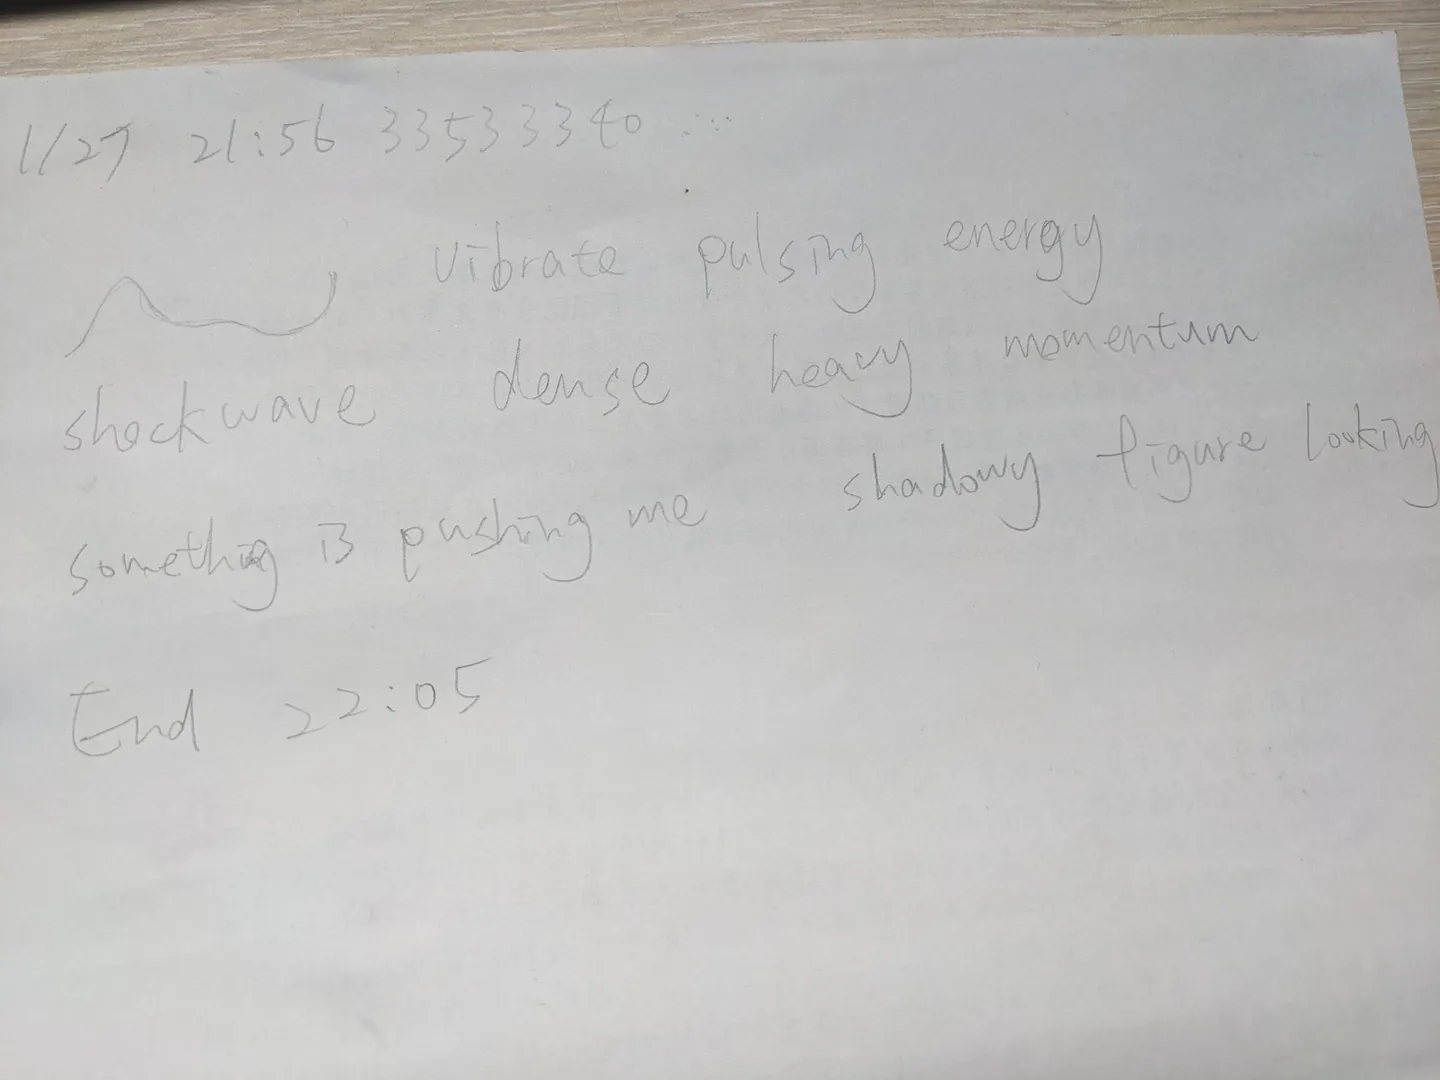 1/27 21:56 33533340 ...
vibrate pulsing energy
shockwave dense heavy momentum
something is pushing me shadowy figure looking
End 22:05